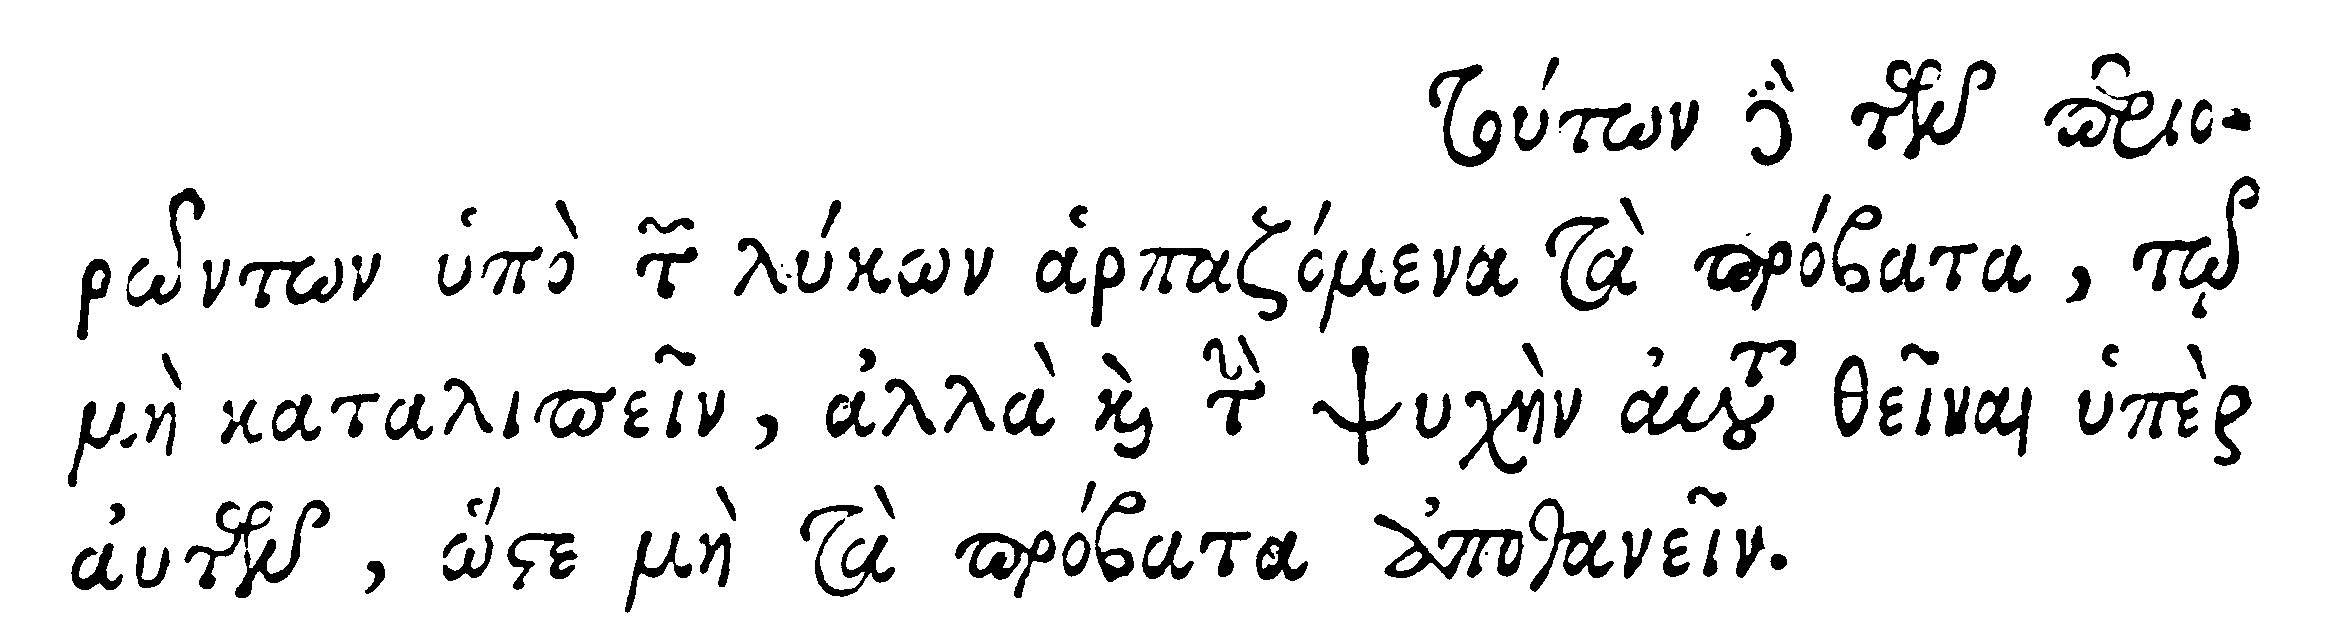 Τούτων δὲ τῶν περιο-
ρώντων ὑπὸ τῶν λύκων ἁρπαζόμενα τὰ πρόβατα, τῷ
μὴ καταλιπεῖν, ἀλλὰ καὶ τὴν ψυχὴν ἀυτοῦ θεῖναι ὑπὲρ
ἀυτῶν, ὥστε μὴ τὰ πρόβατα ἀποθανεῖν.